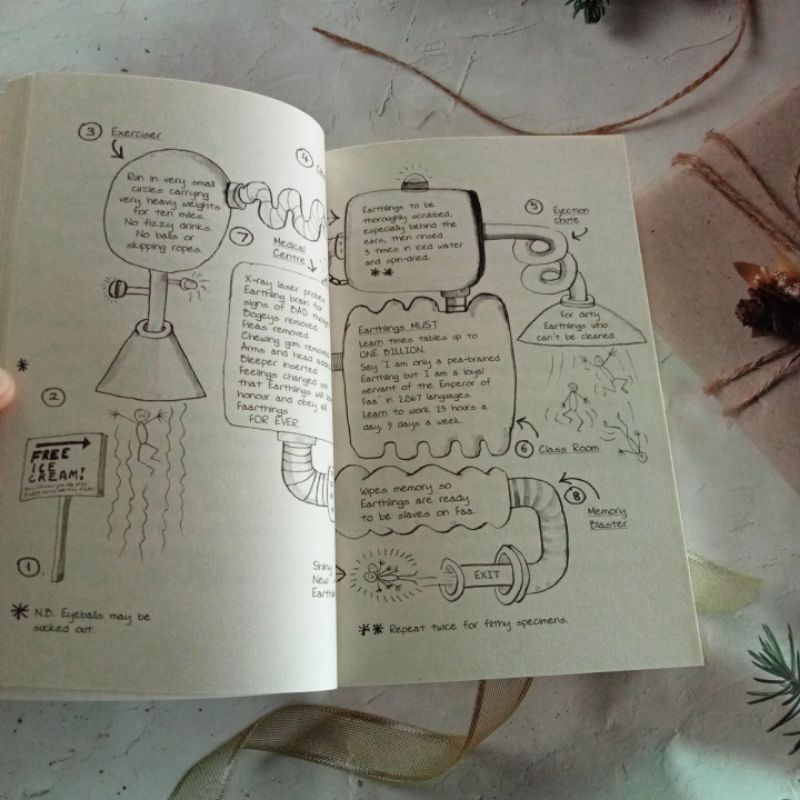 3 Exerciser
Run in very small
circles carrying
very heavy weights
for ten miles.
No fizzy drinks.
No balls or
skipping ropes.
4
7
Medical
Centre
X-ray laser probes
Earthling brain for
signs of BAD
Bogeys removed.
Fleas removed.
Chewing gum removed
Arms and head
Bleeper inserted.
Feelings changed so
that Earthlings will
honour and obey all
Faarthings
FOR EVER
*
2
FREE
ICE
CREAM!
1
* N.B. Eyeballs may be
sucked out.
Earthlings to be
thoroughly scrubbed,
especially behind the
ears, then rinsed
3 times in iced water
and spin-dried.
**
5 Ejection
chute
for dirty
Earthlings who
can't be cleared.
Earthlings MUST
Learn times tables up to
ONE BILLION.
Say 'I am only a pea-brained
Earthling but I am a loyal
servant of the Emperor of
Faa' in 2,067 languages.
Learn to work 23 hours a
day, 9 days a week.
6 Class Room
Wipes memory so
Earthlings are ready
to be slaves on Faa.
8
Memory
Blaster
Shiny
New
EXIT
** Repeat twice for filthy specimens.